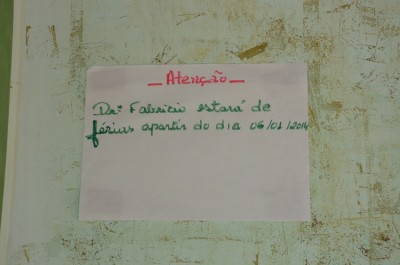 _Atenção_
Dr.º Fabricio estará de
férias apartir do dia 06/01/2014